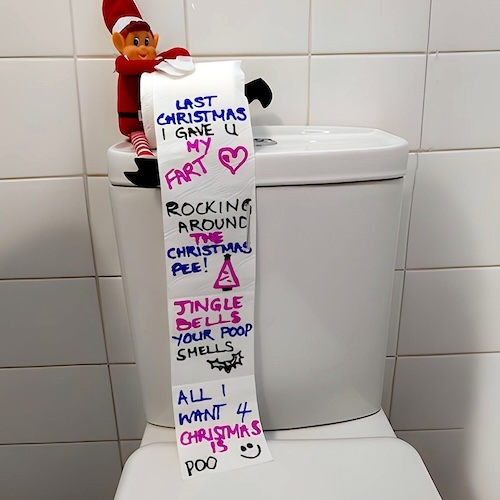 LAST
CHRISTMAS
I GAVE U
MY
FART
ROCKING
AROUND
THE
CHRISTMAS
PEE!
JINGLE
BELLS
YOUR POOP
SMELLS
ALL I
WANT 4
CHRISTMAS
IS
POO